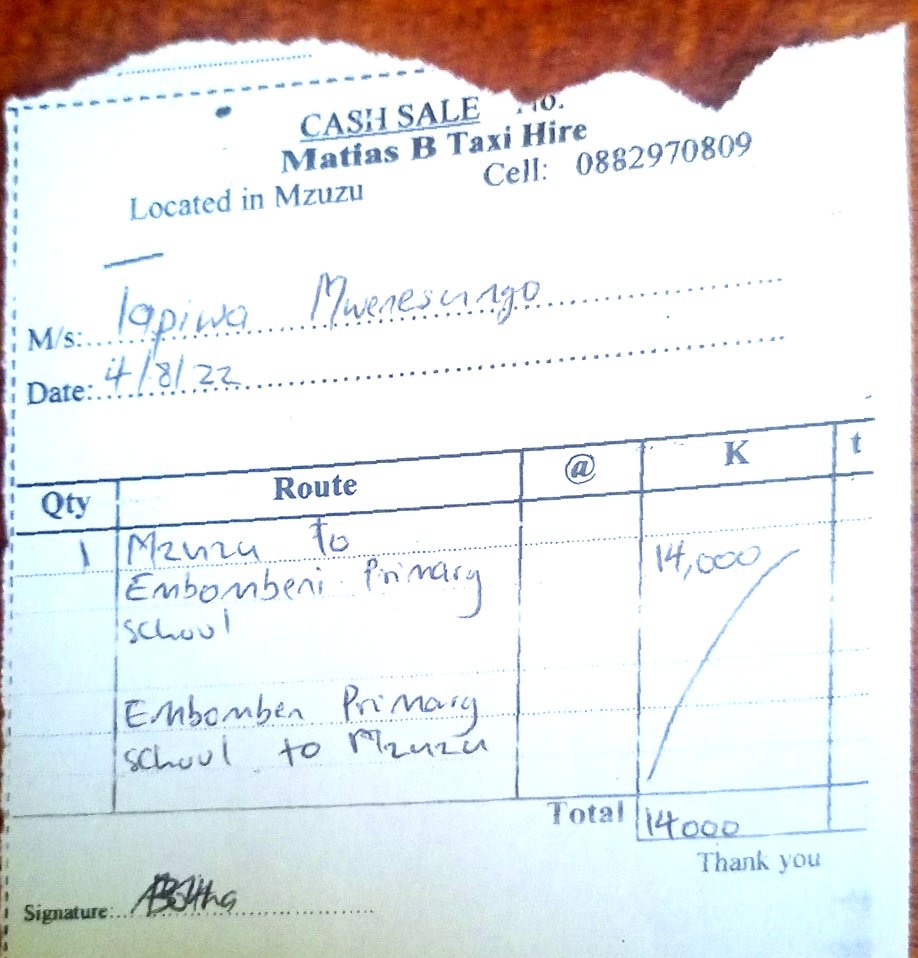 CASH SALE No.
Matias B Taxi Hire
Located in Mzuzu Cell: 0882970809
M/s: Tapiwa Mwenesungo
Date: 4/8/22
Qty Route @ K t
1 Mzuzu To 14,000
Embombeni Primary
school
Embomben Primary
school to Mzuzu
Total 14000
Thank you
Signature: